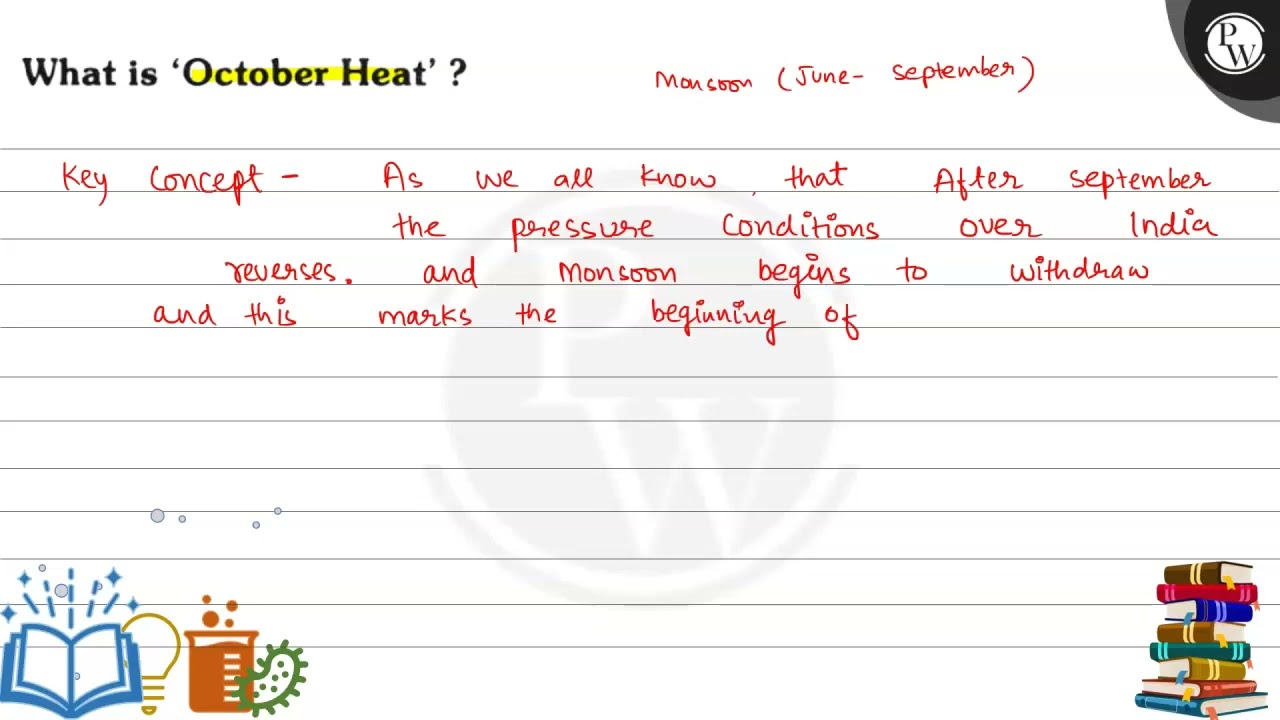 What is ‘October Heat’ ?
Monsoon (June- September)
PW
Key Concept - As we all know, that After september
the pressure conditions over India
reverses. and monsoon begins to withdraw
and this marks the beginning of
PW